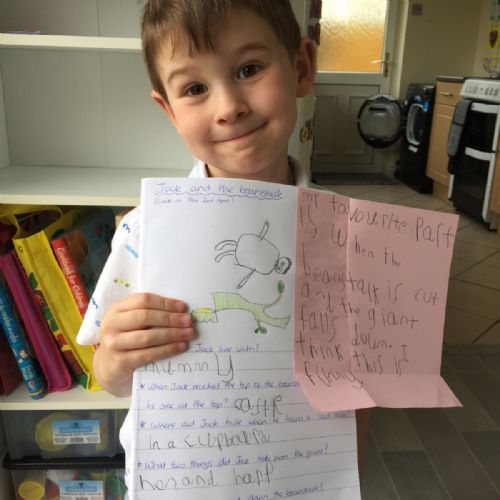 Jack and the beanstalk
Jack live with?
mummy
*When Jack reached the top of the
he see at the top? castle
*Where did Jack hide when he heard a loud noise?
In a cupboard
*What two things did Jack take from the giant?
hen and harp
down the beanstalk?
my favourite part
is when the
beanstalk is cut
and the giant
falls down. I
think this is
funny